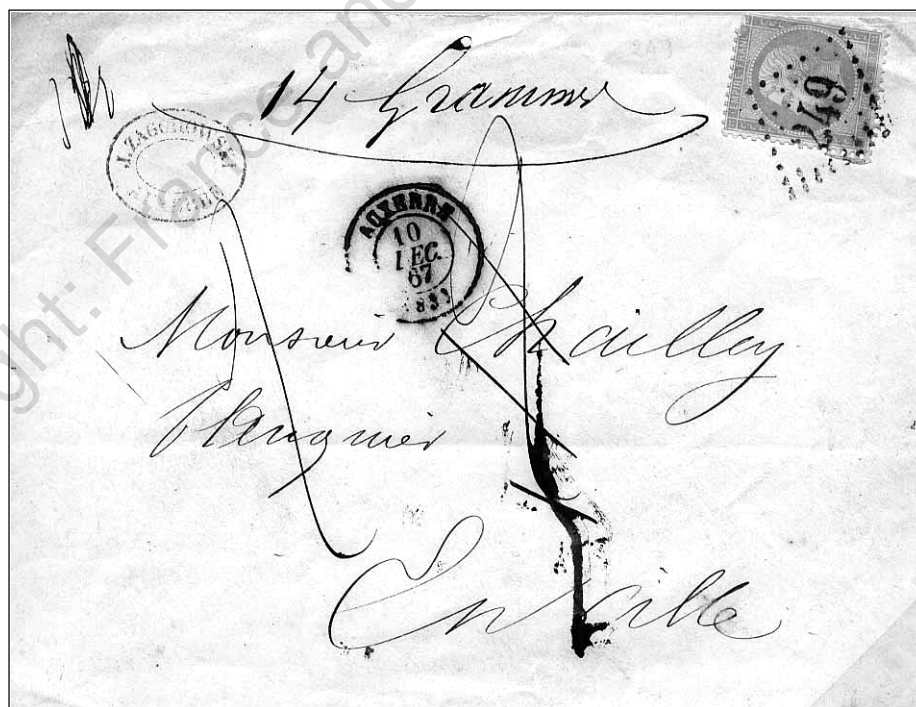 14 Grammes
249
J. ZAGOROWSKI
AUXERRE
10
DEC.
67
(83)
Monsieur Chailley
Banquier
En Ville
ght: France and